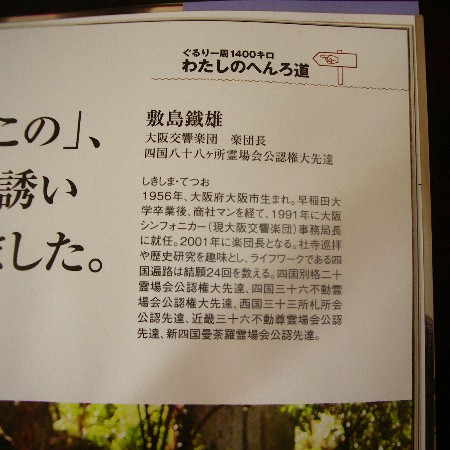 ぐるり一周1400キロ
わたしのへんろ道
この」、
誘い
ました。
敷島鐵雄
大阪交響楽団　楽団長
四国八十八ヶ所霊場会公認権大先達
しきしま・てつお
1956年、大阪府大阪市生まれ。早稲田大
学卒業後、商社マンを経て、1991年に大阪
シンフォニカー(現大阪交響楽団)事務局長
に就任。2001年に楽団長となる。社寺巡拝
や歴史研究を趣味とし、ライフワークである四
国遍路は結願24回を数える。四国別格二十
霊場会公認権大先達、四国三十六不動霊
場会公認権大先達、西国三十三所札所会
公認先達、近畿三十六不動尊霊場会公認
先達、新四国曼荼羅霊場会公認先達。